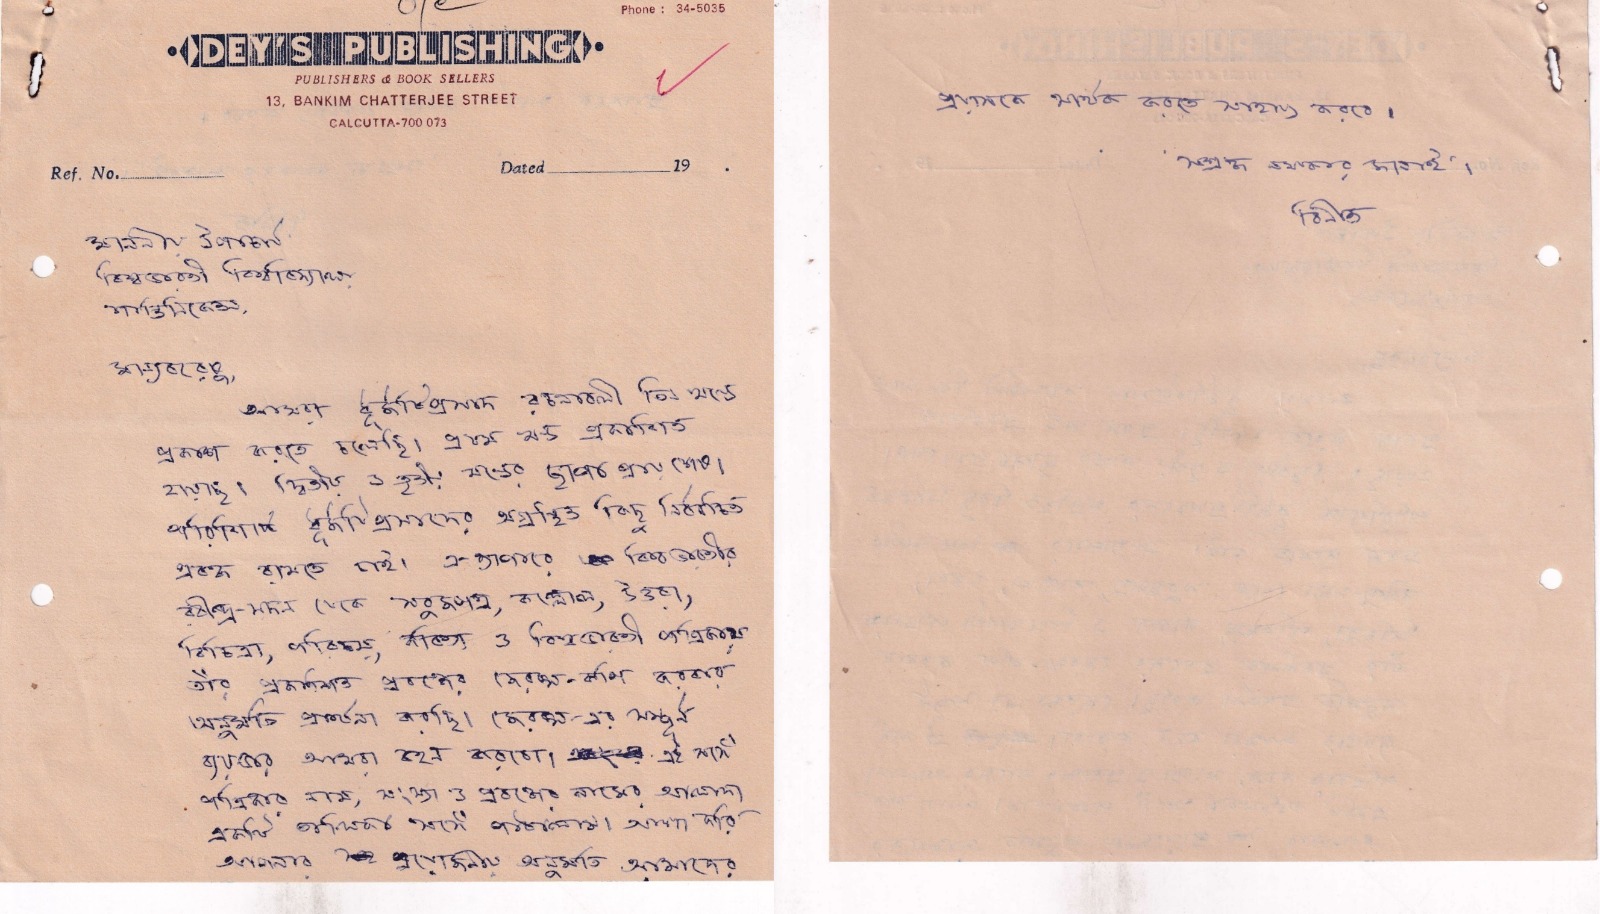 o/c
Phone : 34-5035
DEY'S PUBLISHING
PUBLISHERS & BOOK SELLERS
13, BANKIM CHATTERJEE STREET
CALCUTTA-700 073
Ref. No.
Dated 19 .
মাননীয় উপাচার্য
বিশ্বভারতী বিশ্ববিদ্যালয়
শান্তিনিকেতন.
মান্যবরেষু,
আমরা ধূর্জটিপ্রসাদ রচনাবলী তিন খণ্ডে
প্রকাশ করতে চলেছি। প্রথম খণ্ড প্রকাশিত
হয়েছে। দ্বিতীয় ও তৃতীয় খণ্ডের ছাপা প্রায় শেষ।
পরিশিষ্টে ধূর্জটিপ্রসাদের অগ্রন্থিত কিছু নির্বাচিত
প্রবন্ধ রাখতে চাই। এ-ব্যাপারে বিশ্বভারতীর
রবীন্দ্র-সদন থেকে সবুজপত্র, কল্লোল, উত্তরা,
বিচিত্রা, পরিচয়, কবিতা ও বিশ্বভারতী পত্রিকায়
তাঁর প্রকাশিত প্রবন্ধের জেরক্স-কপি করবার
অনুমতি প্রার্থনা করছি। জেরক্স-এর সম্পূর্ণ
ব্যয়ভার আমরা বহন করবো। এই সঙ্গে
পত্রিকার নাম, সংখ্যা ও প্রবন্ধের নামের আলাদা
একটি তালিকা সঙ্গে পাঠালাম। আশা করি
আপনার প্রয়োজনীয় অনুমতি আমাদের
প্রয়াসকে সার্থক করতে সাহায্য করবে।
সশ্রদ্ধ নমস্কার জানাই।
বিনীত